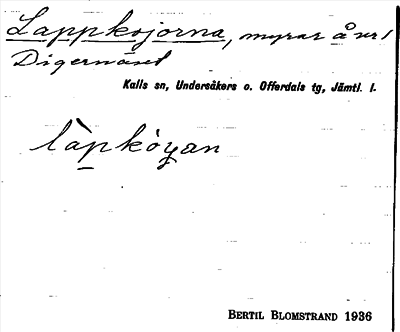 Lappkojorna, myrar å nr 1
Digernäset
Kalls sn, Undersåkers o. Offerdals tg, Jämtl. l.
làpkòyan
BERTIL BLOMSTRAND 1936